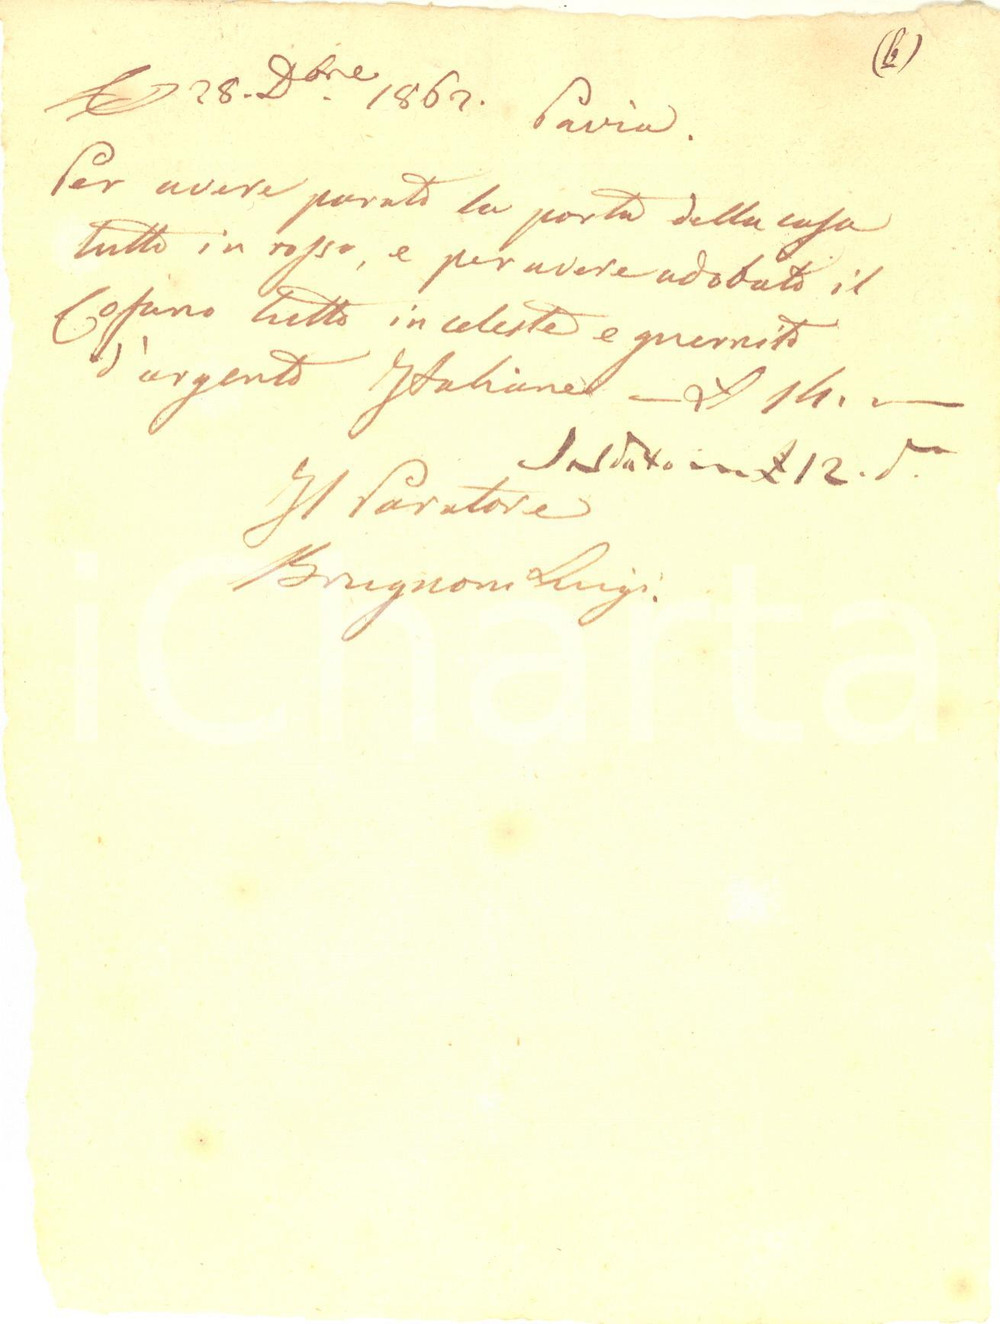 (6)
Li 28. Dbre. 1862. Pavia.
Per avere parato la porta della casa
tutto in rosso, e per avere adobato il
Cofano tutto in celeste e guernito
d'argento Italiane — £ 14. —
Saldato in £ 12. d.
Il Paratore
Brugnoni Luigi.
iCharta